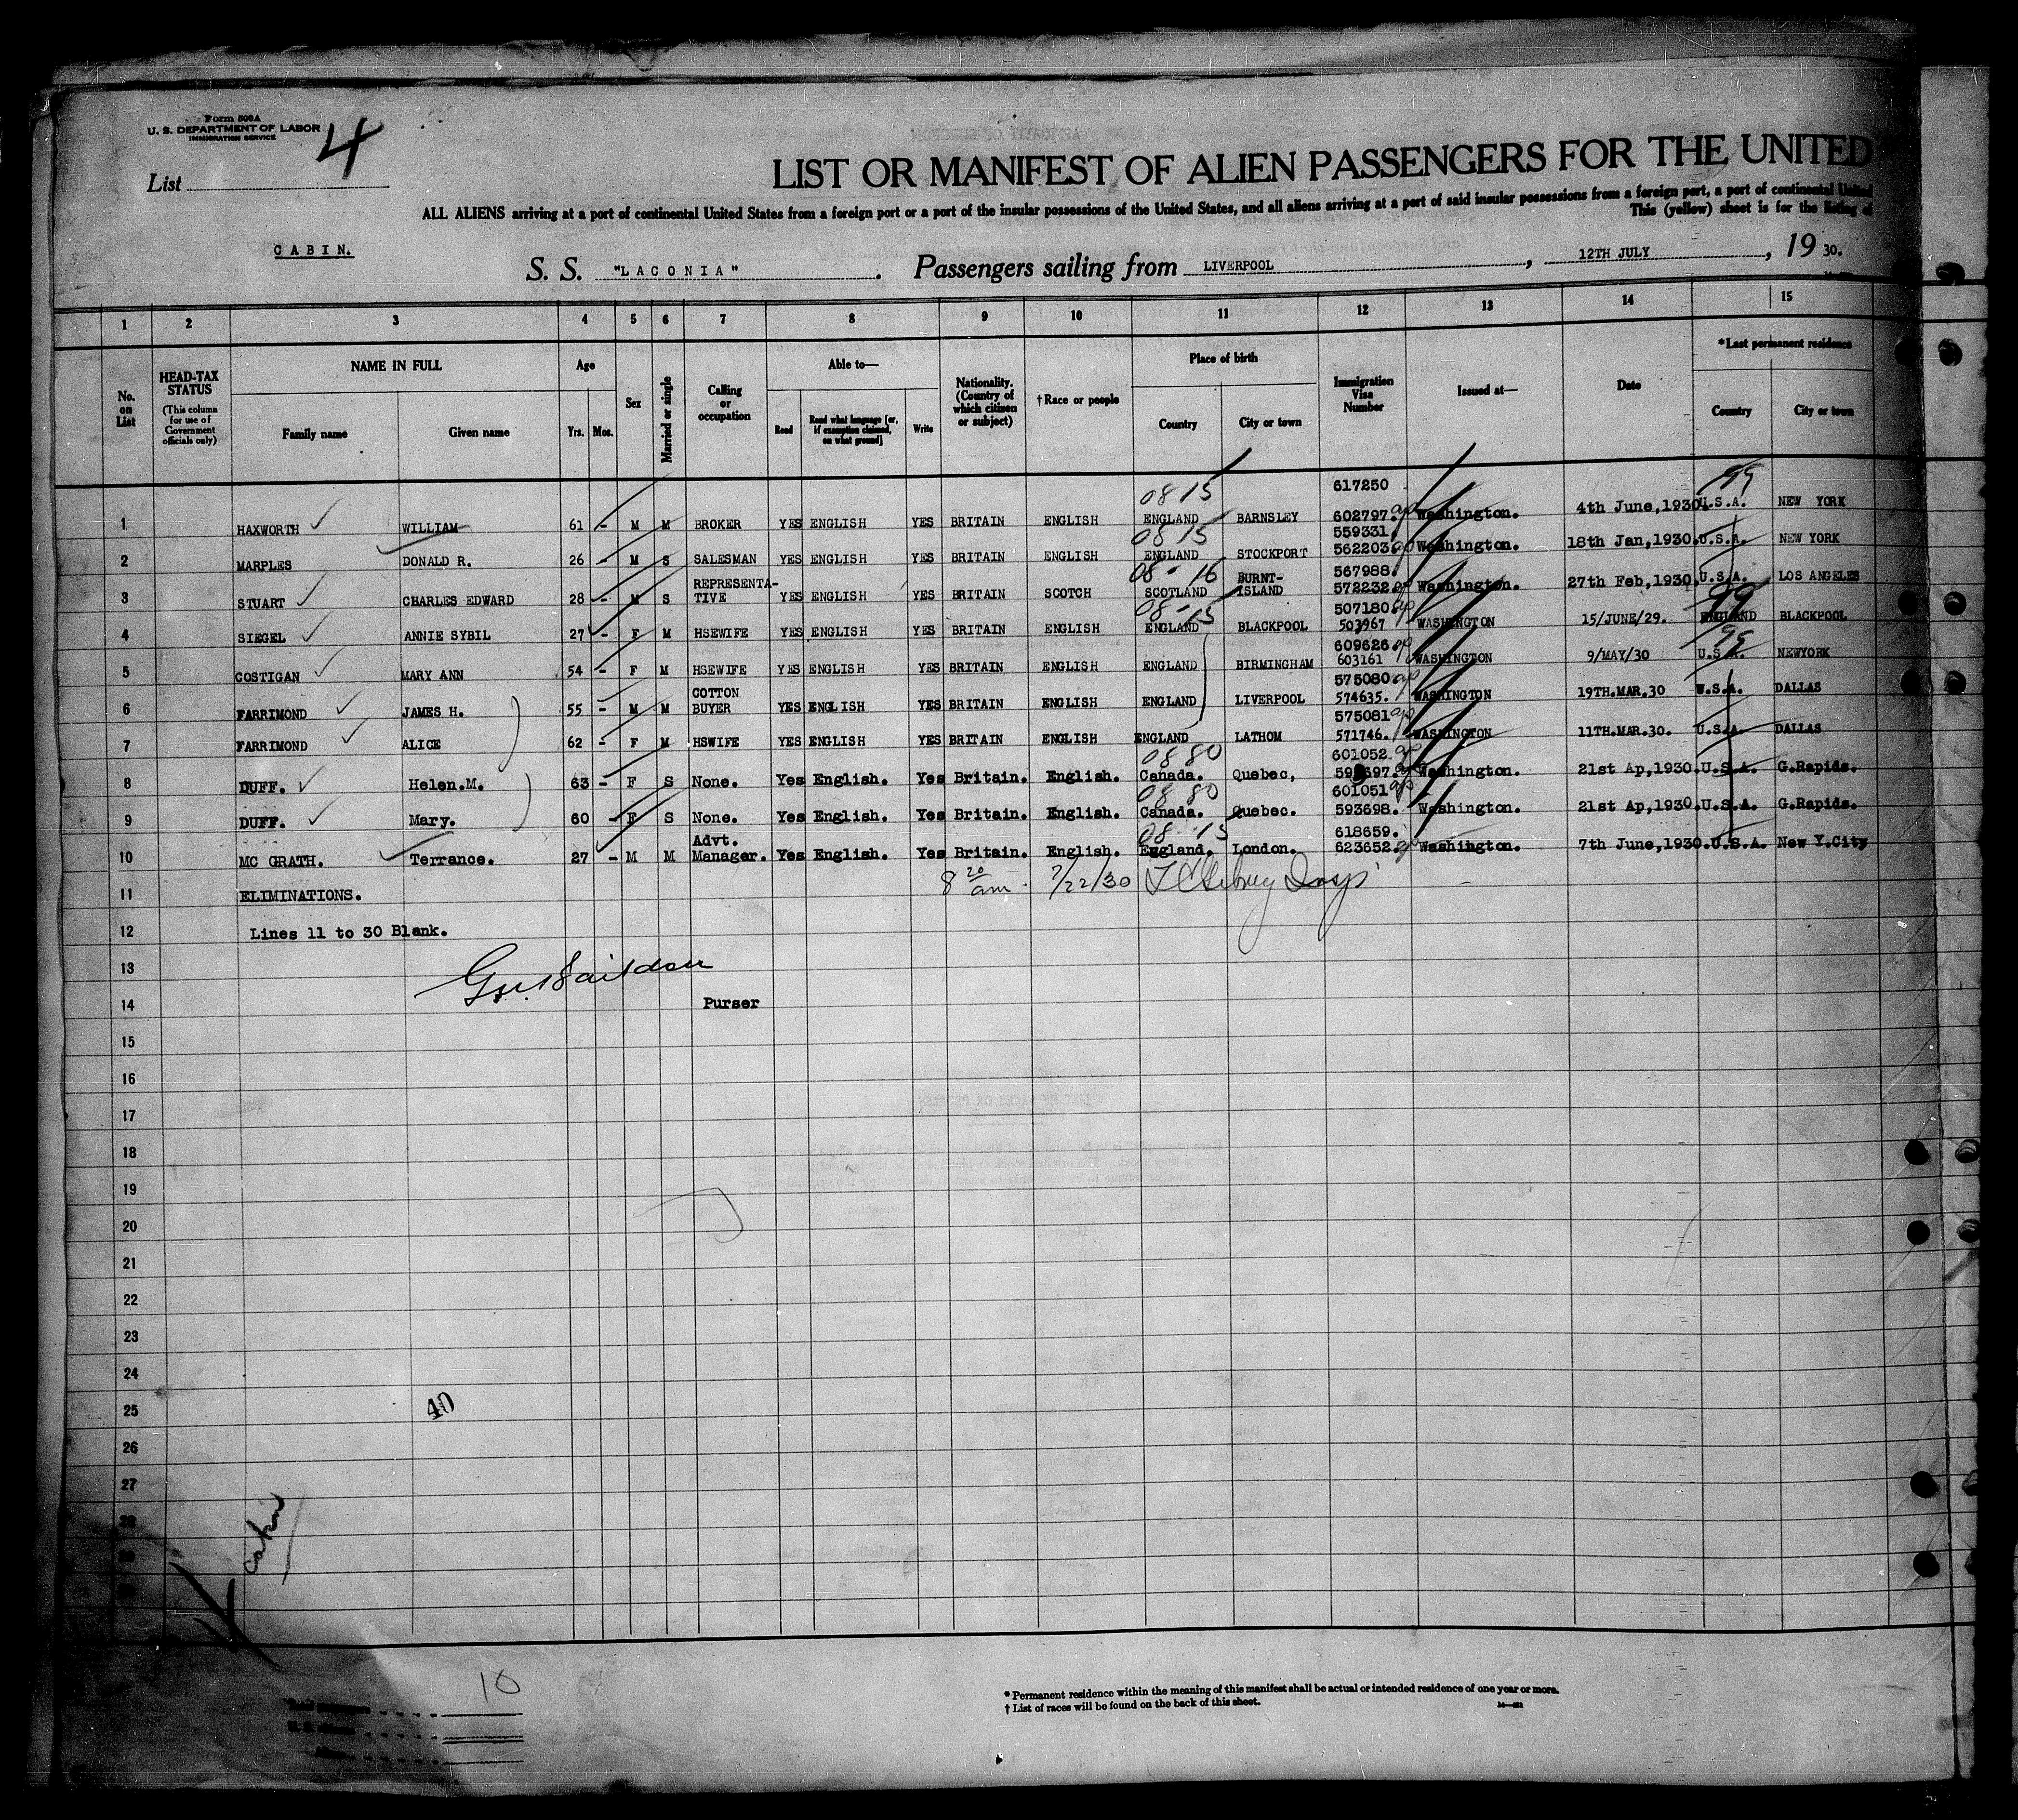 Form 500A
U. S. DEPARTMENT OF LABOR
IMMIGRATION SERVICE
List 4
LIST OR MANIFEST OF ALIEN PASSENGERS FOR THE UNITED
ALL ALIENS arriving at a port of continental United States from a foreign port or a port of the insular possessions of the United States, and all aliens arriving at a port of said insular possessions from a foreign port, a port of continental United
This (yellow) sheet is for the listing of
CABIN.
S. S. "LACONIA". Passengers sailing from LIVERPOOL, 12TH JULY, 19 30.
1 2 3 4 5 6 7 8 9 10 11 12 13 14 15
No. on List
HEAD-TAX STATUS (This column for use of Government officials only)
NAME IN FULL
Family name Given name
Age
Yrs. Mos.
Sex
Married or single
Calling or occupation
Able to—
Read Read what language [or, if exemption claimed, on what ground] Write
Nationality. (Country of which citizen or subject)
† Race or people
Place of birth
Country City or town
Immigration Visa Number
Issued at—
Date
*Last permanent residence
Country City or town
0815 617250 99
1 HAXWORTH WILLIAM 61 - M M BROKER YES ENGLISH YES BRITAIN ENGLISH ENGLAND BARNSLEY 602797. Washington. 4th June,1930 U.S.A. NEW YORK
0815 559331
2 MARPLES DONALD R. 26 - M S SALESMAN YES ENGLISH YES BRITAIN ENGLISH ENGLAND STOCKPORT 562203. Washington. 18th Jan,1930. U.S.A. NEW YORK
08-16 567988.
3 STUART CHARLES EDWARD 28 - M S REPRESENTA-TIVE YES ENGLISH YES BRITAIN SCOTCH SCOTLAND BURNT-ISLAND 572232. Washington. 27th Feb,1930 U.S.A. LOS ANGELES
08-15 507180. 99
4 SIEGEL ANNIE SYBIL 27 - F M HSEWIFE YES ENGLISH YES BRITAIN ENGLISH ENGLAND BLACKPOOL 503967 WASHINGTON 15/JUNE/29. ENGLAND BLACKPOOL
609626 99
5 COSTIGAN MARY ANN 54 - F M HSEWIFE YES ENGLISH YES BRITAIN ENGLISH ENGLAND BIRMINGHAM 603161 WASHINGTON 9/MAY/30 U.S.A. NEWYORK
575080
6 FARRIMOND JAMES H. 55 - M M COTTON BUYER YES ENGLISH YES BRITAIN ENGLISH ENGLAND LIVERPOOL 574635. WASHINGTON 19TH.MAR.30 U.S.A. DALLAS
575081
7 FARRIMOND ALICE 62 - F M HSWIFE YES ENGLISH YES BRITAIN ENGLISH ENGLAND LATHOM 571746. WASHINGTON 11TH.MAR.30. U.S.A. DALLAS
0880 601052.
8 DUFF. Helen.M. 63 - F S None. Yes English. Yes Britain. English. Canada. Quebec, Washington. 21st Ap,1930. U.S.A. G.Rapids.
0880 601051
9 DUFF. Mary. 60 - F S None. Yes English. Yes Britain. English. Canada. Quebec. 593698. Washington. 21st Ap,1930. U.S.A. G.Rapids.
08 15 618659.
10 MC GRATH. Terrance. 27 - M M Advt. Manager. Yes English. Yes Britain. English. England. London. 623652. Washington. 7th June,1930. U.S.A. New Y.City
11 ELIMINATIONS. 8 20 am. 7/22/30
12 Lines 11 to 30 Blank.
13
14 Purser
15
16
17
18
19
20
21
22
23
24
25 40
26
27
28
cabin
10
* Permanent residence within the meaning of this manifest shall be actual or intended residence of one year or more.
† List of races will be found on the back of this sheet.